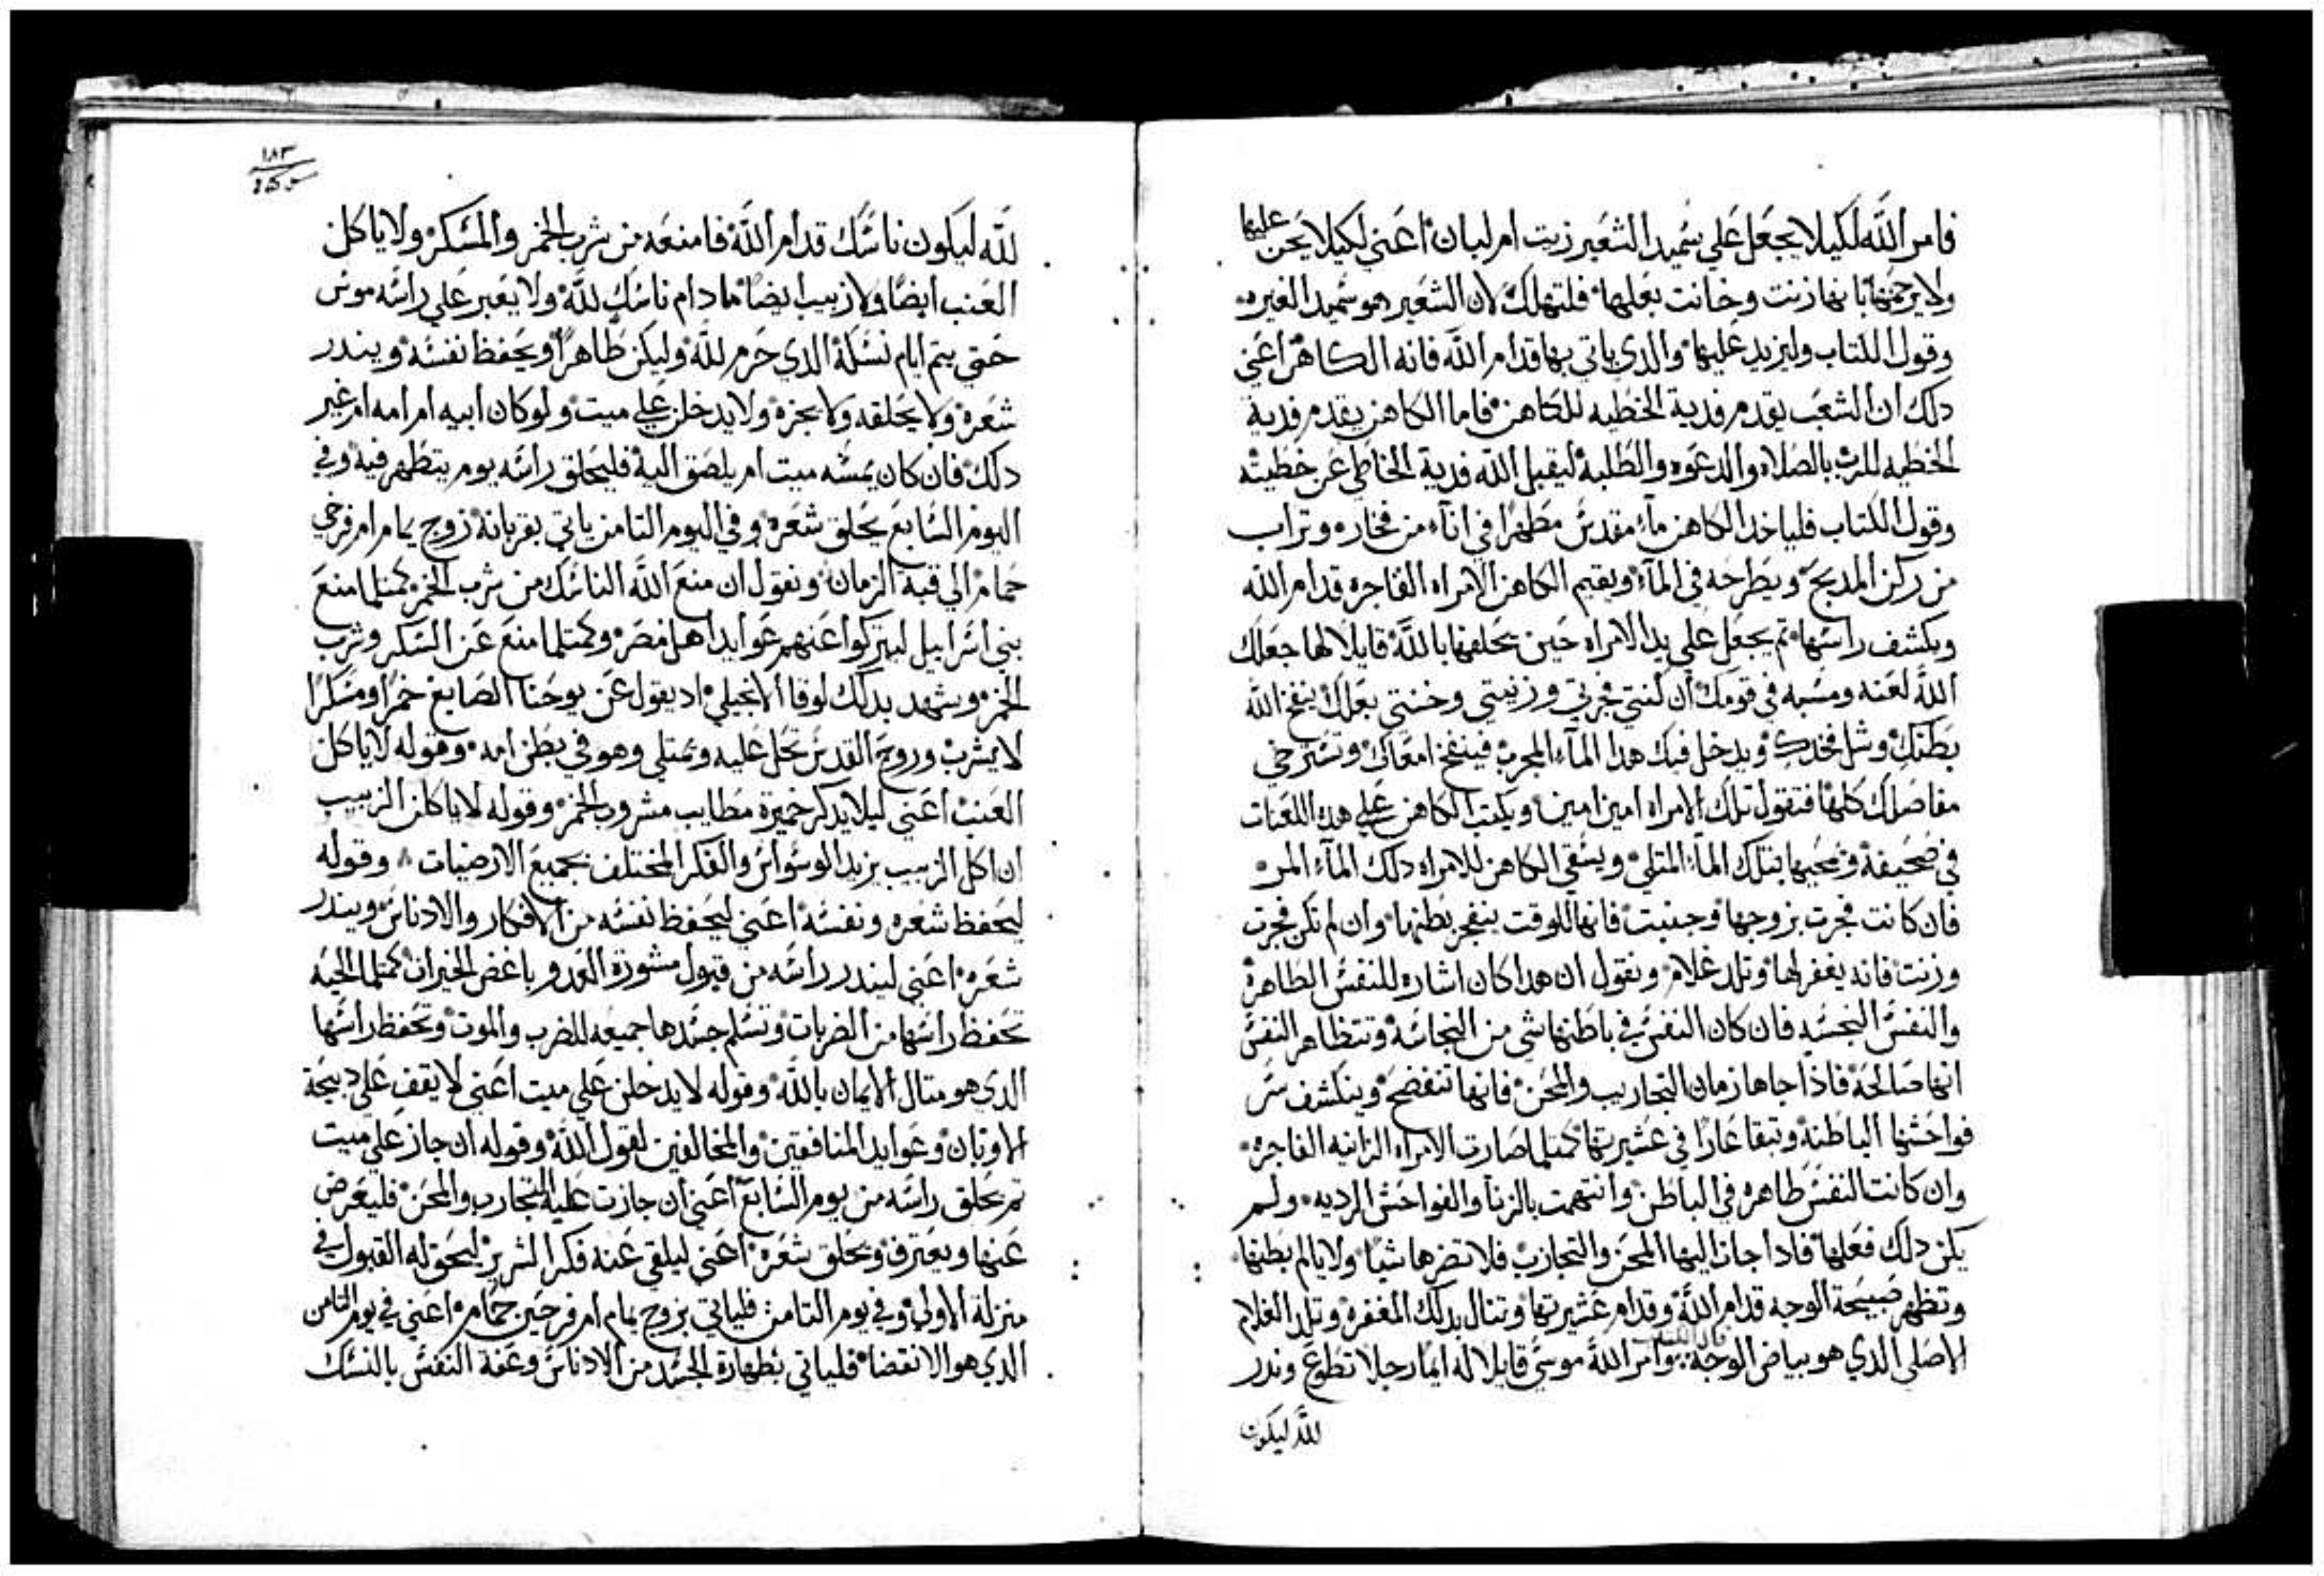 فامر الله لكيلا يجعل علي سميد الشعير زيت ام لبان اعني لكيلا يحن عليها
ولا يرحمها بانها زنت وخانت بعلها فلتهلك لان الشعير هو سميد الغيره
وقول الكتاب وليزيد عليها والدي ياتي بها قدام الله فانه الكاهن اعني
دلك ان الشعب يقدم فدية الخطيه للكاهن فاما الكاهن يقدم فدية
الخطيه للرب بالصلاه والدعوه والطلبة ليقبل الله فدية الخاطي عن خطيته
وقول الكتاب فلياخد الكاهن ماء مقدس مطهرا في اناء من فخاره وتراب
من ركن المدبح ويطرحه في الماء ويقيم الكاهن الامراه الفاجره قدام الله
ويكشف راسها تم يجعل علي يد الامراه حين يحلفها بالله قايلا لها جعلك
الله لعنه ومسبه في قومك ان كنتي فجرتي وزنيتي وخنتي بعلك ينفخ الله
بطنك وشل فخدك ويدخل فيك هدا الماء المجرب فينفخ امعاك وتسترخي
مفاصلك كلها فتقول تلك الامراه امين امين ويكتب الكاهن علي هده اللعنات
في صحيفة وتمحيها بتلك الماء المتلي ويسقي الكاهن للامراه دلك الماء المر
فان كانت فجرت بزوجها وجنبت فانها للوقت ينفجر بطنها وان لم تكن فجرت
وزنت فانه يغفر لها وتلد غلام ونقول ان هدا كان اشاره للنفس الطاهرة
والنفس النجسه فان كان النفس في باطنها شي من النجاسة وتتظاهر النفس
انها صالحة فاذا جاها زمان التجاريب والمحن فانها تنفضح وينكشف سر
فواحشها الباطنة وتبقا عارا في عشيرتها كمتلما صارت الامراه الزانيه الفاجره
وان كانت النفس طاهره في الباطن وانتهمت بالزنا والفواحش الرديه ولم
يكن دلك فعلها فادا جاز اليها المحن والتجارب فلا تضرها شيا ولا يالم بطنها
وتظهر صبيحة الوجه قدام الله وقدام عشيرتها وتنال بدلك المغفرة وتلد الغلام
الاصلي الذي هو بياض الوجه وامر الله موسي قايلا له ايما رجلا تطوع وندر
لله ليكون
١٨٣
لله ليكون ناسك قدام الله فامنعه من شرب الخمر والمسكر ولا ياكل
العنب ايضا ولا زبيب ايضا ما دام ناسك لله ولا يعبر علي راسه موس
حتي يتم ايام نسكة الدي حرم لله وليكن طاهرا ويحفظ نفسه ويندر
شعره ولا يحلقه ولا يجزه ولا يدخلن علي ميت ولو كان ابيه ام امه ام غير
دلك فان كان يمسه ميت ام يلصق اليه فليحلق راسه يوم يتطهر فيه وفي
اليوم السابع يحلق شعره وفي اليوم التامن ياتي بقربانة زوج يمام ام فرخي
حمام الي قبة الزمان ونقول ان منع الله الناسك من شرب الخمر كمتلما منع
بني اسراييل ليتركوا عنهم عوايد اهل مصر وكمتلما منع عن السكر وشرب
الخمر ويشهد بدلك لوقا الانجيلي اد يقول عن يوحنا الصابغ خمرا ومسكرا
لا يشرب وروح القدس تحل عليه وتمتلي وهو في بطن امه وقوله لا ياكل
العنب اعني ليلا يدكر خميرة مطايب مشروب الخمر وقوله لا ياكلن الزبيب
ان اكل الزبيب يزيد الوسواس والفكر المختلف بجميع الارضيات وقوله
ليحفظ شعره ونفسه اعني ليحفظ نفسه من الافكار والادناس ويندر
شعره اعني ليندر راسه من قبول مشورة العدو باغض الخيرات كمتلما الحيه
تحفظ راسها من الضربات وتسلم جسدها جميعه للضرب والموت وتحفظ راسها
الدي هو متال الايمان بالله وقوله لا يدخلن علي ميت اعني لا يقف علي دبيحة
الاوتان وعوايد المنافقين والمخالفين لقول الله وقوله ان جاز علي ميت
تم يحلق راسه من يوم السابع اعني ان جازت عليه التجارب والمحن فليعرض
عنها ويعترف ويحلق شعره اعني ليلقي عنه فكر الشرير ليحق له القبول في
منزلة الاولي وفي يوم التامن فلياتي بزوج يمام ام فرخين حمام اعني في يوم التامن
الدي هو الانقضا فلياتي بطهارة الجسد من الادناس وعفة النفس بالنسك